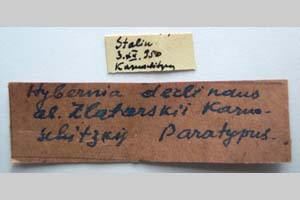 Stalin
3.XI.950
Karnoshitzky
Hybernia declinans
al. Zlatarskii Karno-
schitzky Paratypus.